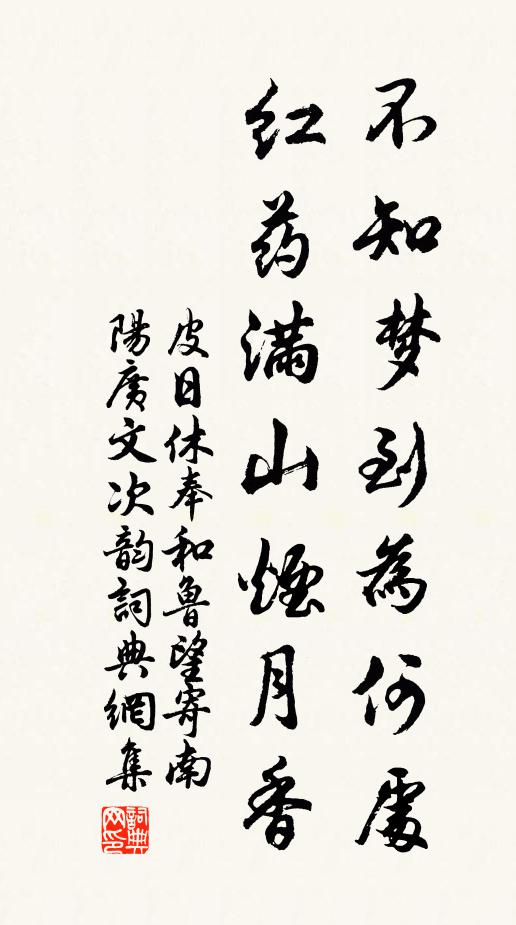 不知梦到為何處
红药满山煙月香
皮日休奉和魯望寄南
陽廣文次韵詞典網集
詞典
网印